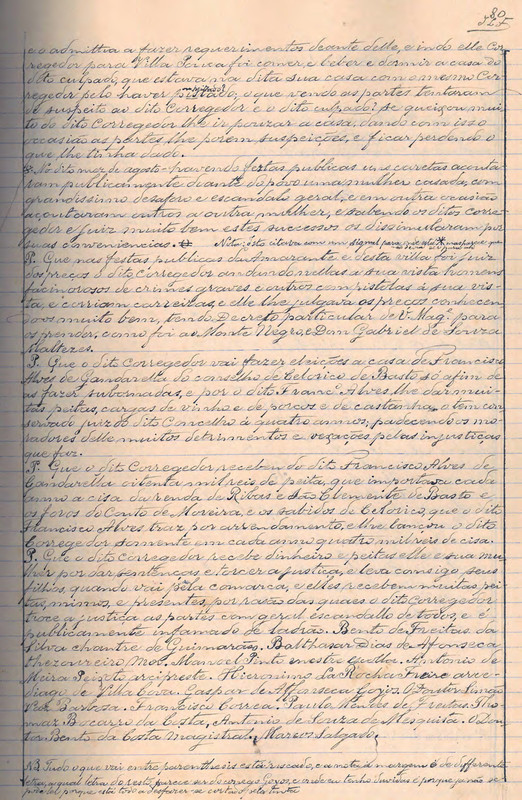 80
e o admittia a fazer requerimentos deante delle, e indo elle Cor
regedor para Villa Pouca foi comer, e beber e dormir a casa do
dito culpado, que estava na dita sua casa com o mesmo Cor
regedor pelo haver o que vendo as partes tentaram
de suspeito ao dito Corregedor e o dito culpado se queixou mui
to do dito Corregedor lhe ir pouzar a casa, dando com isso
occasião as partes, lhe porem suspeições, e ficar perdendo o
que lhe tinha dado.
No dito mez de agosto havendo festas publicas uns caretas açouta
ram publicamente diante do povo uma mulher casada, com
grandissimo desaforo e escandalo geral, e em outra occasião
açoutaram outros a outra mulher, e sabendo os ditos corre
gedor e juiz muito bem estes successos os dissimularam por
suas conveniencias. Nota: isto estava com um signal para
P. Que nas festas publicas de Amarante e desta villa foi juiz
dos preços o dito Corregedor andando nellas a sua vista homens
facinorosos de crimes graves e outros compistitas á sua vis
ta, e corriam carreiras, e elle lhe julgava os preços conhecen
do os muito bem, tendo Decreto particular de V. Mag. para
os prender, como foi ao Monte Negro, e Dom Gabriel de Souza
Maltezes.
P. Que o dito Corregedor vai fazer eleições a casa de Francisco
Alves de Gandarella do conselho de Celorico de Basto só afim de
as fazer subornadas, e por o dito Franc.º Alves, lhe dar mui
tas peitas, cargas de vinho e de porcos e de castanha, o tem con
servado juiz do dito Concelho á quatro annos, padecendo os mo
radores delle muitos detrimentos e vexações pelas injustiças
que faz.
P. Que o dito Corregedor recebeu do dito Francisco Alves de
Gandarella oitenta mil reis de peita, que importou cada
anno a cisa da renda de Ribas e São Clemente de Basto e
os foros do Couto de Moreira, e os sabidos de Celorico, que o dito
Francisco Alves traz por arrendamento, e lhe lançou o dito
Corregedor somente em cada anno quatro mil reis de cisa.
P. Que o dito corregedor recebe dinheiro e peitas elle e sua mu
lher por dar sentenças e torcer a justiça, e leva comsigo, seus
filhos, quando vai pela comarca, e elles recebem muitas pei
tas, mimos, e presentes, por razão das quaes o dito Corregedor
troce a justiça as partes com geral escandallo de todos, e é
publicamente infamado de ladrão. Bento de Freitas da
Silva chantre de Guimarães. Balthasar Dias de Affonseca
thezoureiro mor. Manoel Pinto mestre escolla. Antonio de
Meira Peixoto arcipreste. Hieronimo da Rocha Freire arce
diago de Villa Cova. Gaspar de Affonseca Goes. O Doutor Simão
Vaz Barbosa. Francisco Correa. Paulo Mendes de Freitas. Tho
maz Bocarro da Costa, Antonio de Souza de Mesquita. O Dou
tor Bento da Costa magistral. Marcos Salgado.
NB. Tudo o que vai entre parenthesis está riscado, e a nota á margem é de differente
letra, a qual letra do resto, parece ser do conego Goes,